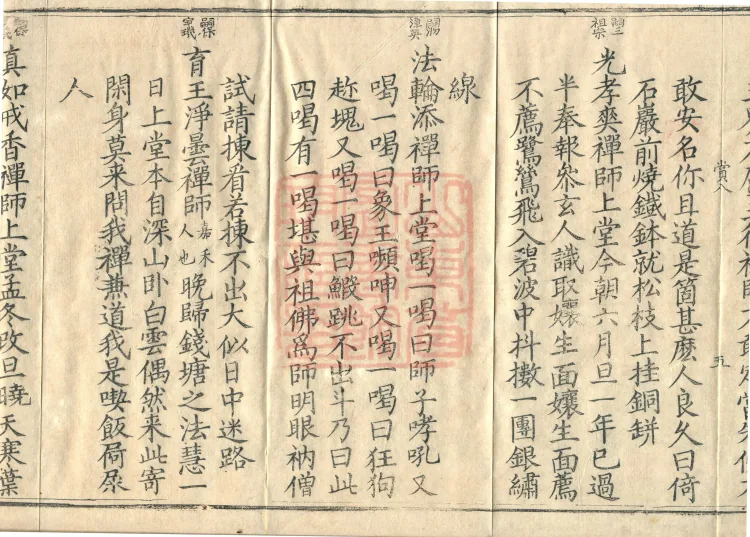 賞八
五
敢安名你且道是箇甚麼人良久曰倚
石巖前燒鐵鉢就松枝上挂銅缾
光孝爽禪師上堂今朝六月旦一年已過
半奉報叅玄人識取孃生面孃生面薦
不薦鷺鷥飛入碧波中抖擻一團銀繡
線
法輪添禪師上堂喝一喝曰師子哮吼又
喝一喝曰象王嚬呻又喝一喝曰狂狗
趂塊又喝一喝曰鰕跳不出斗乃曰此
四喝有一喝堪與祖佛爲師明眼衲僧
試請揀看若揀不出大似日中迷路
嗣保寧璣
育王淨曇禪師嘉禾人也晚歸錢塘之法慧一
日上堂本自深山卧白雲偶然来此寄
閑身莫来問我禪兼道我是喫飯屙屎
人
真如戒香禪師上堂孟冬改旦曉天寒葉